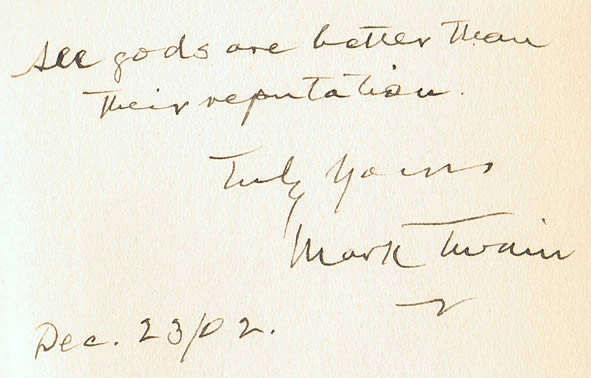 All gods are better than
their reputation.
Truly Yours
Mark Twain
Dec. 23/02.